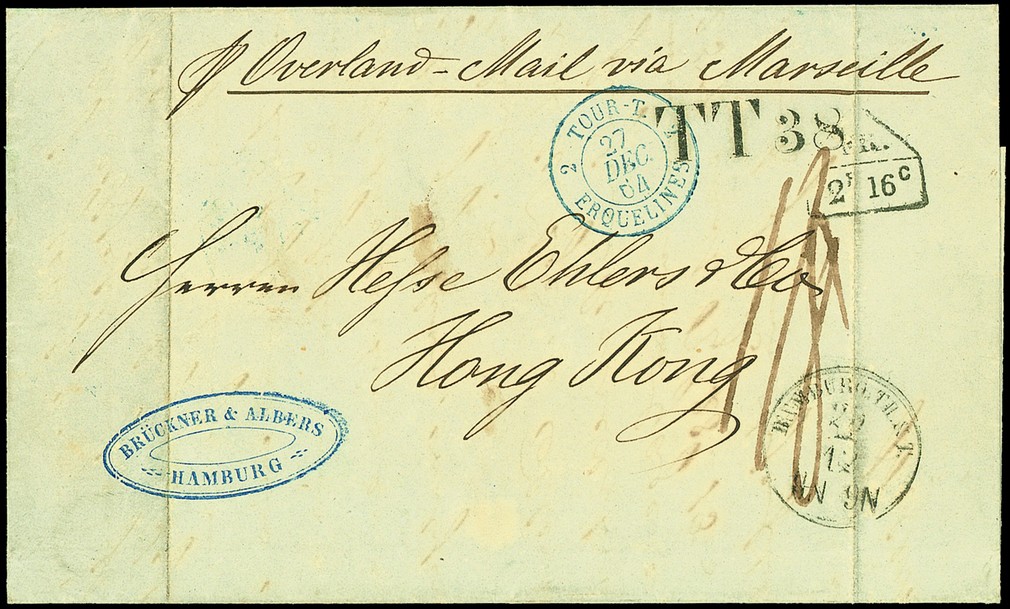 p Overland-Mail via Marseille
TT 38
2 TOUR-T.
27
DEC.
64
ERQUELINES
FR.
2F 16C
Herren Hesse Ehlers & Co
Hong Kong
BRÜCKNER & ALBERS
HAMBURG
HAMBURG TH.&T.
12
NN 9N